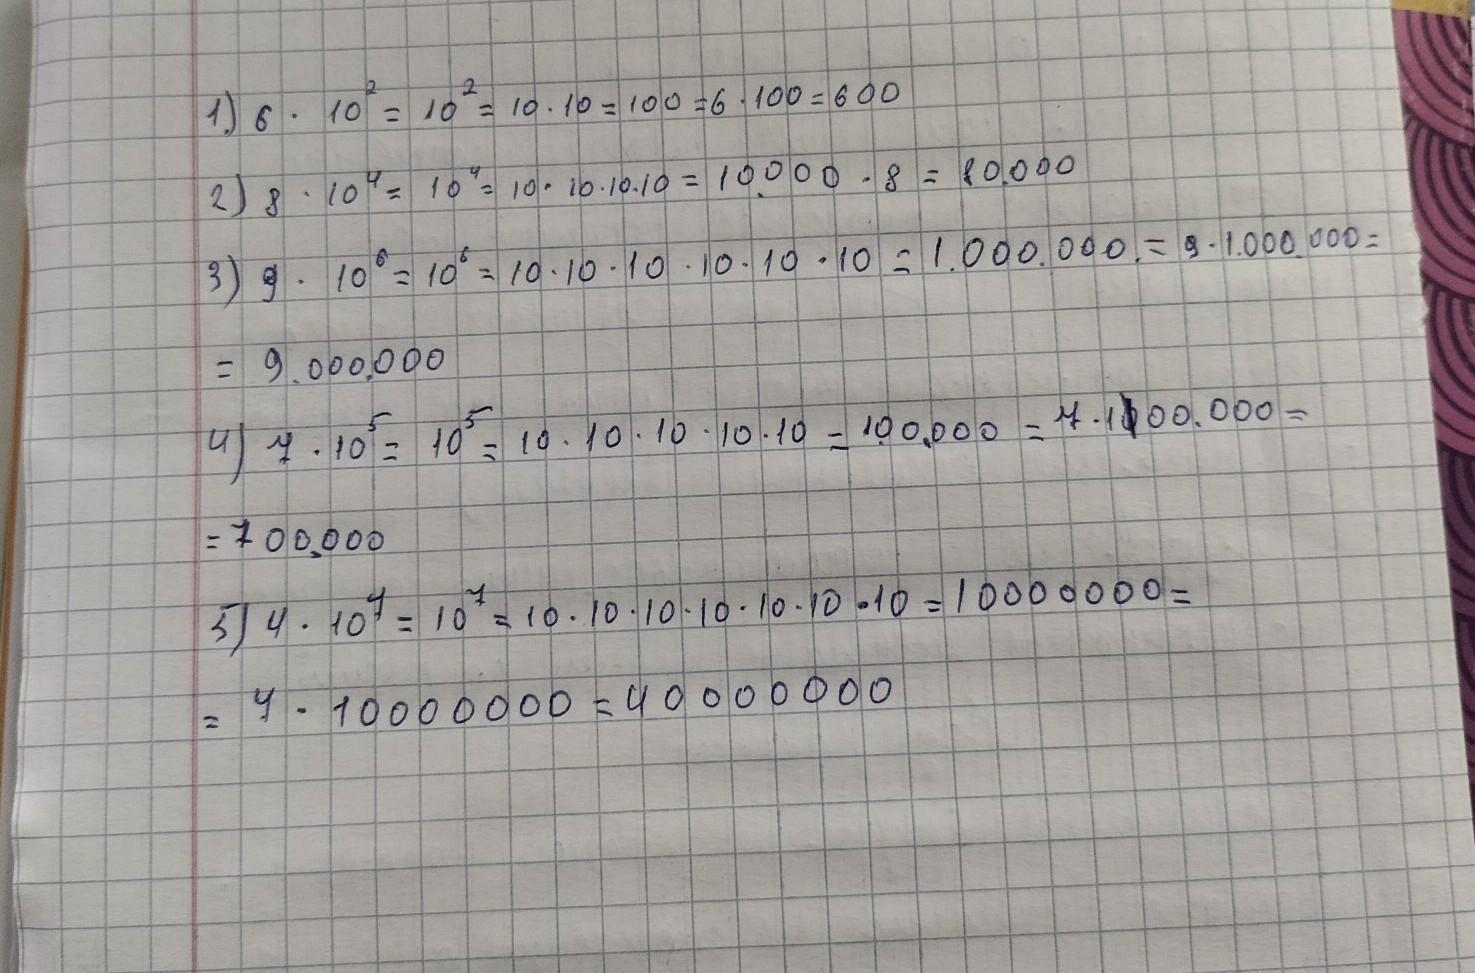 1) 6 · 10² = 10² = 10 · 10 = 100 = 6 · 100 = 600
2) 8 · 10⁴ = 10⁴ = 10 · 10 · 10 · 10 = 10.000 · 8 = 80.000
3) 9 · 10⁶ = 10⁶ = 10 · 10 · 10 · 10 · 10 · 10 = 1.000.000. = 9 · 1.000.000 =
= 9.000.000
4) 7 · 10⁵ = 10⁵ = 10 · 10 · 10 · 10 · 10 = 100.000 = 7 · 100.000 =
= 700.000
5) 4 · 10⁷ = 10⁷ = 10 · 10 · 10 · 10 · 10 · 10 · 10 = 10000000 =
= 4 · 10000000 = 40000000